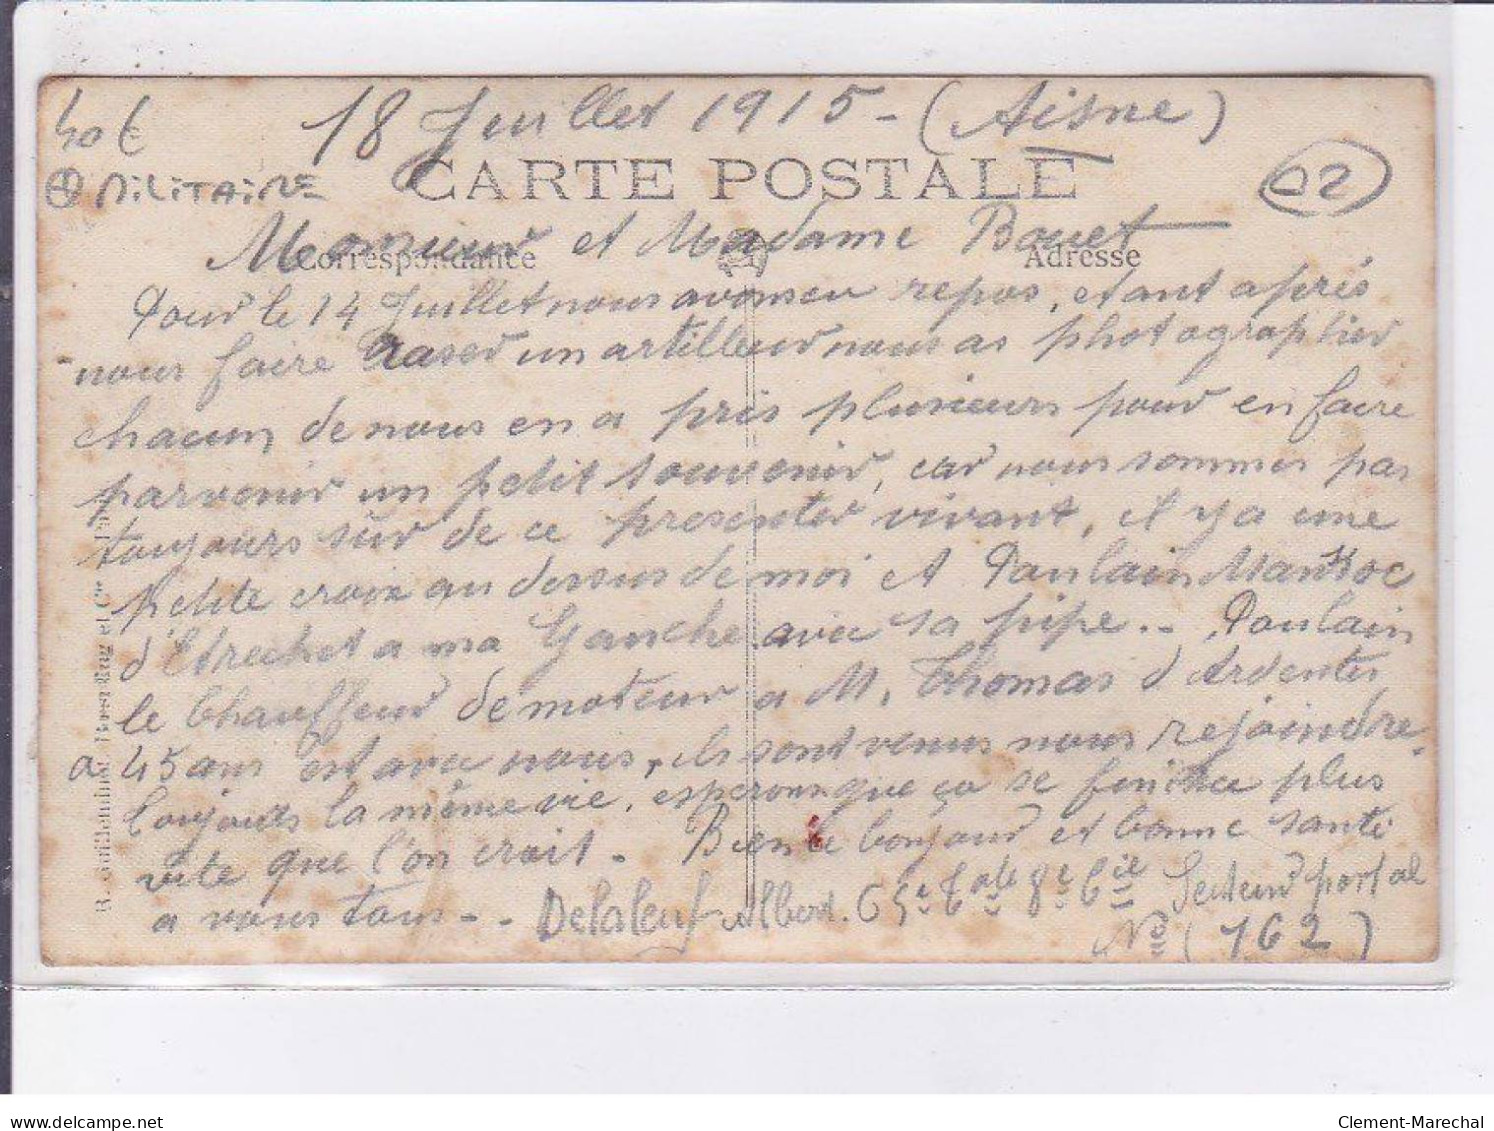 40 €
18 Juillet 1915 - (Aisne)
MILITAIRE
CARTE POSTALE
02
Monsieur et Madame Bouet
Correspondance
Adresse
Pour le 14 Juillet nous avons eu repos, etant après
nous faire raser un artilleur nous as photographier
chacun de nous en a pris plusieurs pour en faire
parvenir un petit souvenir, car nous sommes pas
toujours sûr de ce presenter vivant, il y a une
petite croix au dessus de moi et Poulain
d'Etrechet a ma Gauche avec sa pipe.. Poulain
le Chauffeur de moteur a M. Thomas d'Ardentes
a 45 ans est avec nous, ils sont venus nous rejoindre.
Toujours la même vie, esperons que ça se finira plus
vite que l'on croit. Bien le bonjour et bonne santé
a vous tous - - Delaleuf Albert. 65e Bate 8e Cie Secteur postal
No (162)
R. Guilleminot, et Cie
Clement-Marechal
delcampe.net